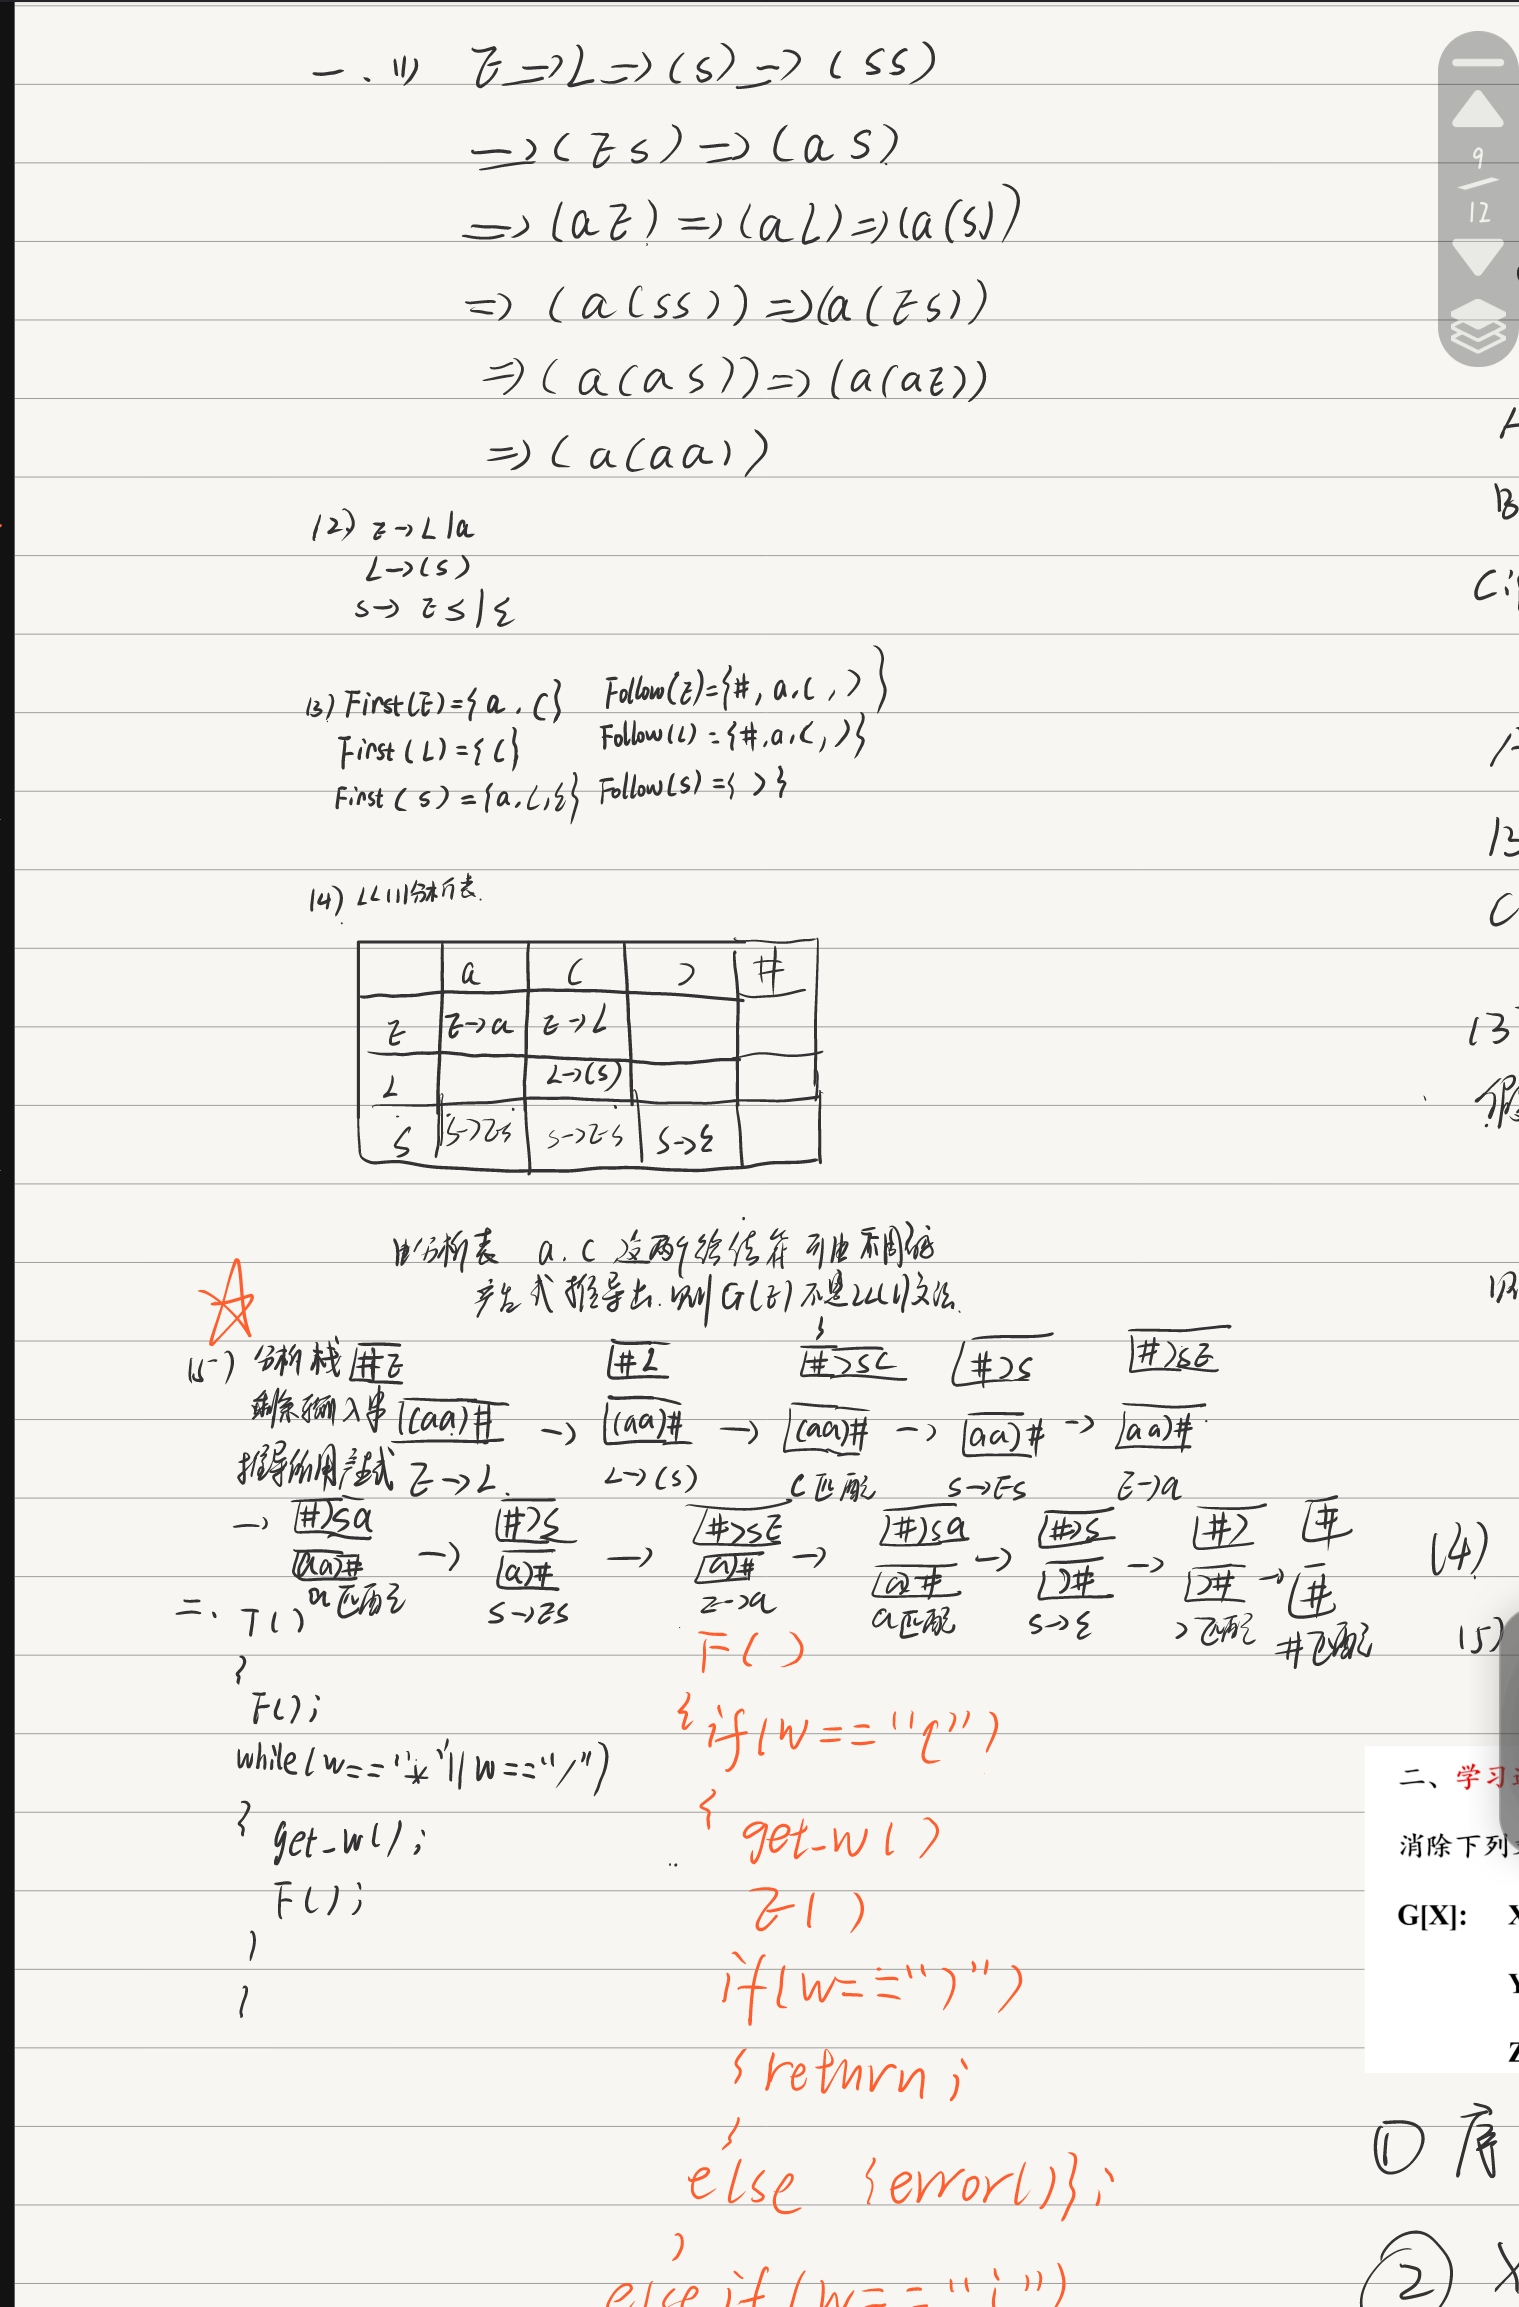 一.(1) E=>L=>(S)=>(SS)
=>(ES)=>(aS)
=>(aE)=>(aL)=>(a(S))
=>(a(SS))=>(a(ES))
=>(a(aS))=>(a(aE))
=>(a(aa))
(2) E→L|a
L→(S)
S→ES|ε
(3) First(E)={a,(} Follow(E)={#,a,(,)}
First(L)={(} Follow(L)={#,a,(,)}
First(S)={a,(,ε} Follow(S)={)}
(4) LL(1)分析表.
a ( ) #
E E→a E→L
L L→(S)
S S→ES S→ES S→ε
由分析表 a.( 这两个终结符可由不同的
产生式推导出.则G(E)不是LL(1)文法.
(5) 分析栈 #E #L #)S( #)S #)SE
剩余输入串 (aa)# → (aa)# → (aa)# → aa)# → aa)#
推导所用产生式 E→L. L→(S) (匹配 S→ES E→a
→ #)Sa #)S #)SE #)Sa #)S #) #
aa)# → a)# → a)# → a)# → )# → )# → #
a匹配 S→ES E→a a匹配 S→ε )匹配 #匹配
二. T()
{
F();
while(w=="*"||w=="/")
{ get_w();
F();
}
}
F()
{if(w=="(")
{ get_w()
E()
if(w==")")
{return;
}
else {error()};
}
else if(w=="i")
9
12
B
(3)
(4)
(5)
二、学习
消除下列
G[X]:
① 序
②